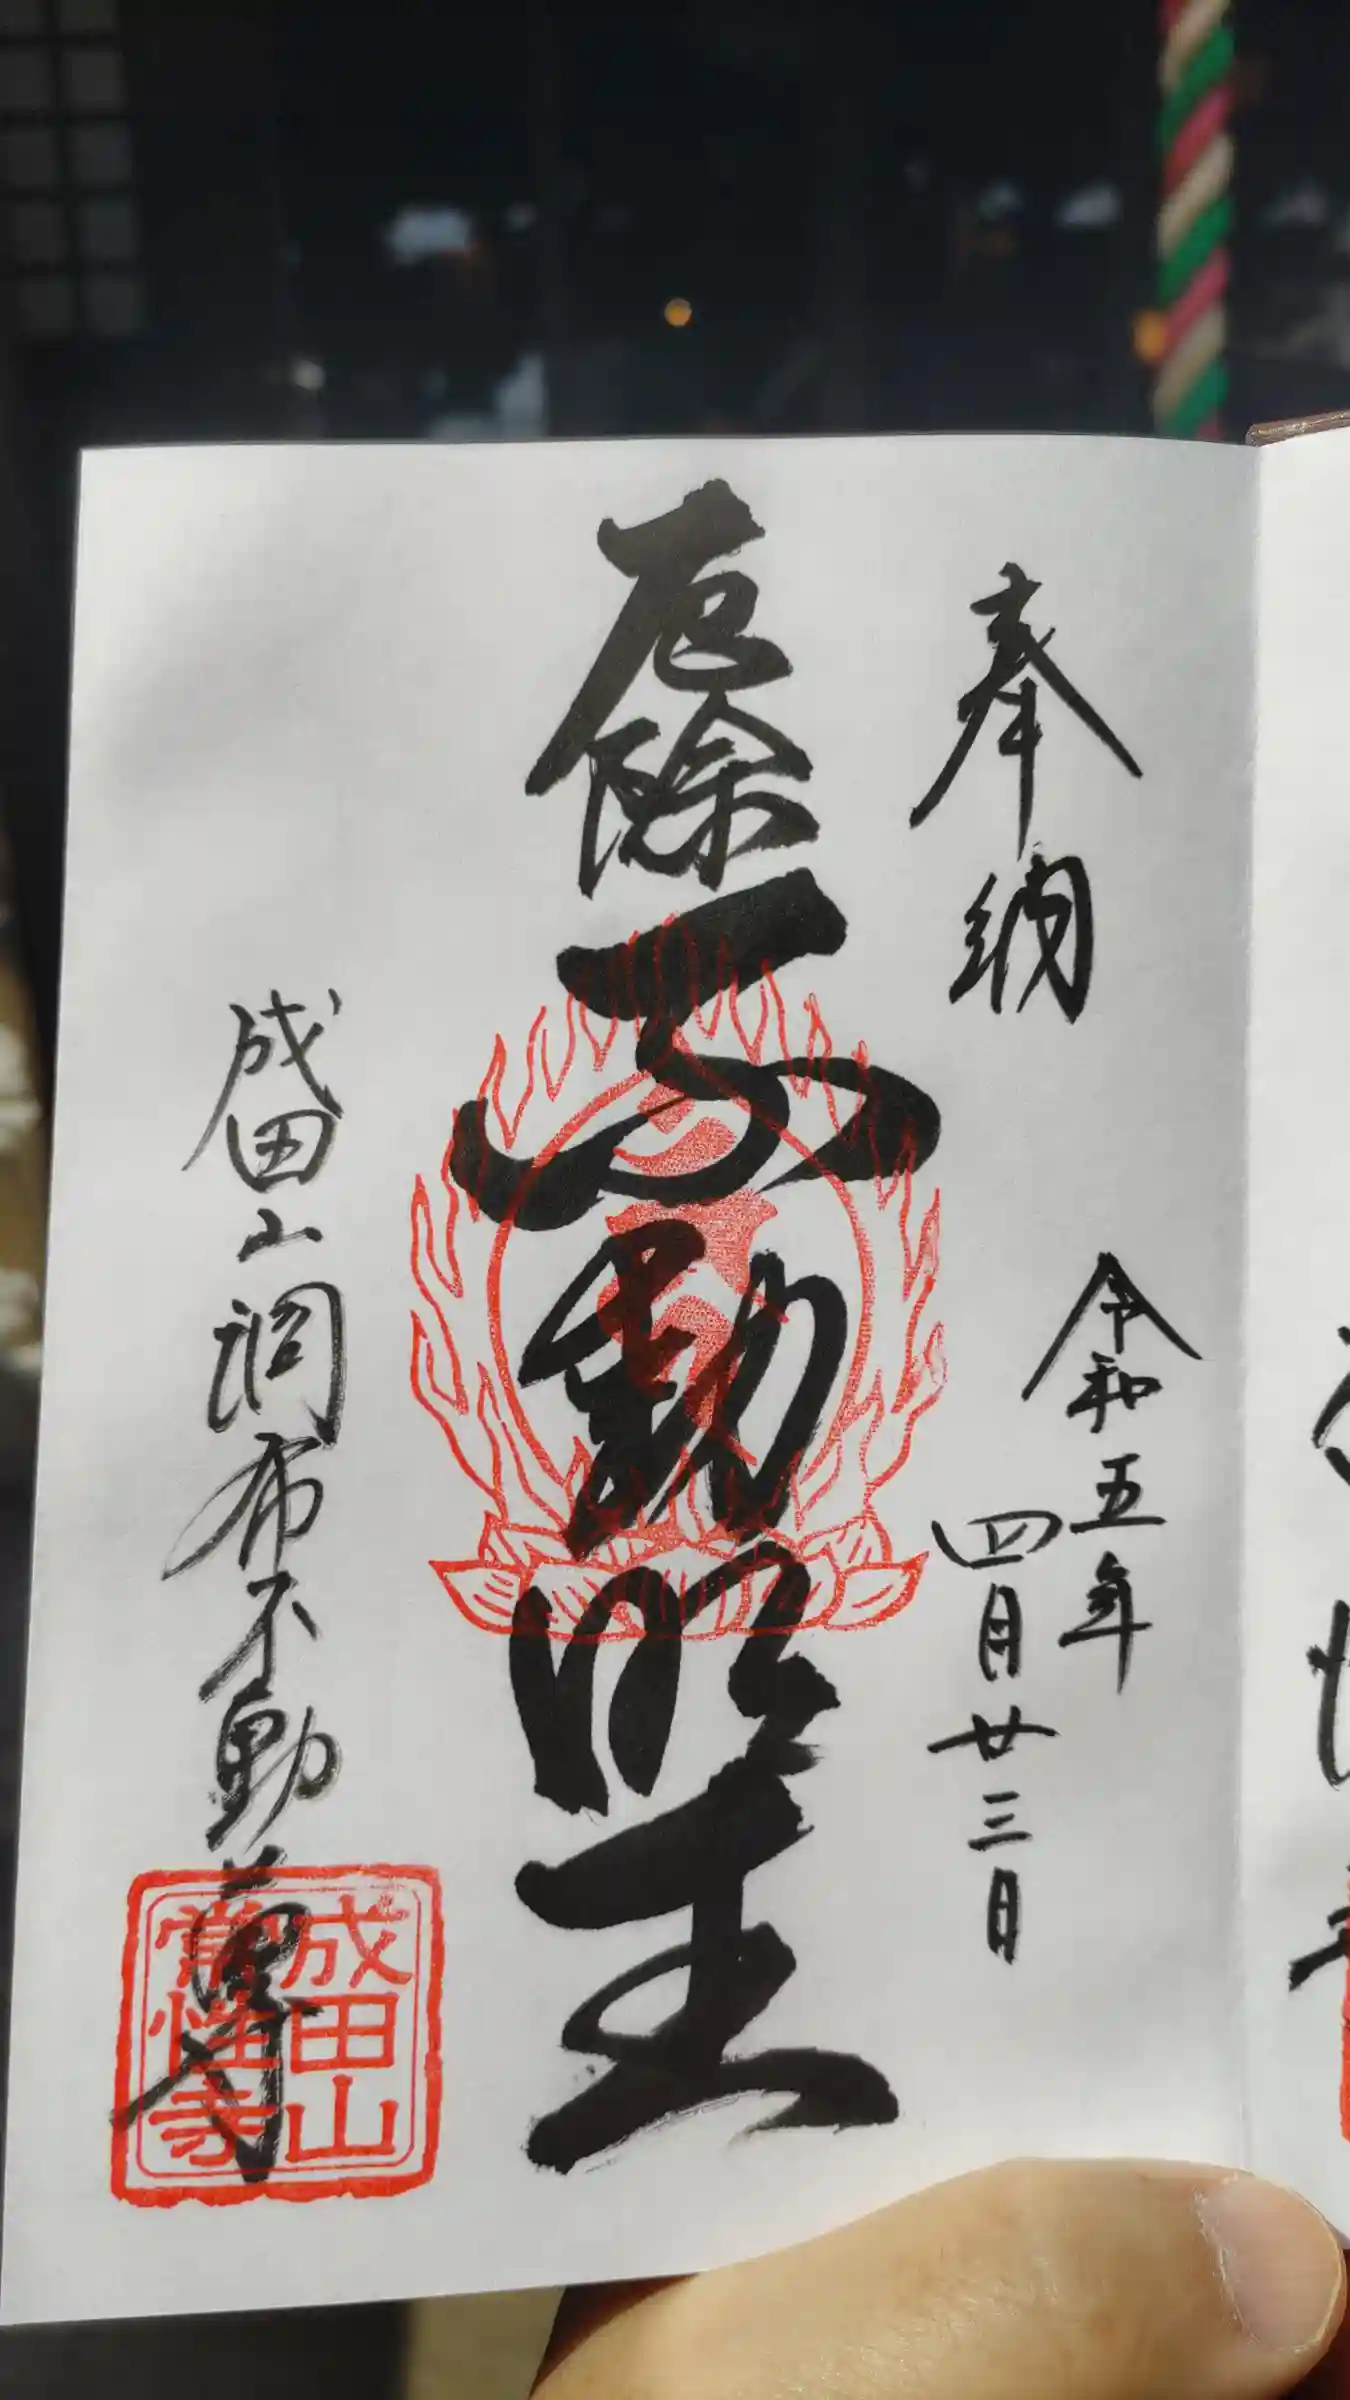 奉納
令和五年
四月廿三日
厄除不動明王
成田山調布不動尊
成田山
常性寺